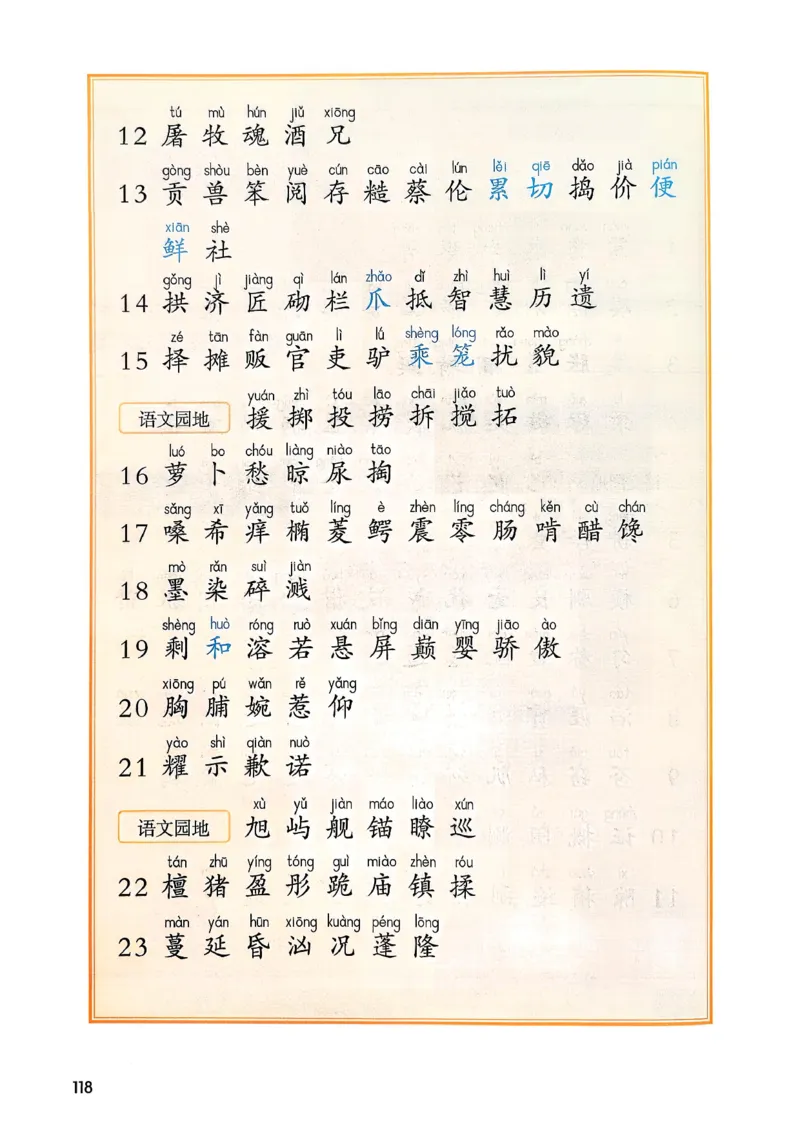 tú mù hún jiǔ xiōng
12 屠 牧 魂 酒 兄
gòng shòu bèn yuè cún cāo cài lún lěi qiē dǎo jià pián
13 贡 兽 笨 阅 存 糙 蔡 伦 累 切 捣 价 便
xiān shè
鲜 社
gǒng jì jiàng qì lán zhǎo dǐ zhì huì lì yí
14 拱 济 匠 砌 栏 爪 抵 智 慧 历 遗
zé tān fàn guān lì lú shèng lóng rǎo mào
15 择 摊 贩 官 吏 驴 乘 笼 扰 貌
yuán zhì tóu lāo chāi jiǎo tuò
语文园地 援 掷 投 捞 拆 搅 拓
luó bo chóu liàng niào tāo
16 萝 卜 愁 晾 尿 掏
sǎng xī yǎng tuǒ líng è zhèn líng cháng kěn cù chán
17 嗓 希 痒 椭 菱 鳄 震 零 肠 啃 醋 馋
mò rǎn suì jiàn
18 墨 染 碎 溅
shèng huò róng ruò xuán bǐng diān yīng jiāo ào
19 剩 和 溶 若 悬 屏 巅 婴 骄 傲
xiōng pú wǎn rě yǎng
20 胸 脯 婉 惹 仰
yào shì qiàn nuò
21 耀 示 歉 诺
xù yǔ jiàn máo liào xún
语文园地 旭 屿 舰 锚 瞭 巡
tán zhū yíng tóng guì miào zhèn róu
22 檀 猪 盈 彤 跪 庙 镇 揉
màn yán hūn xiōng kuàng péng lōng
23 蔓 延 昏 汹 况 蓬 隆
118